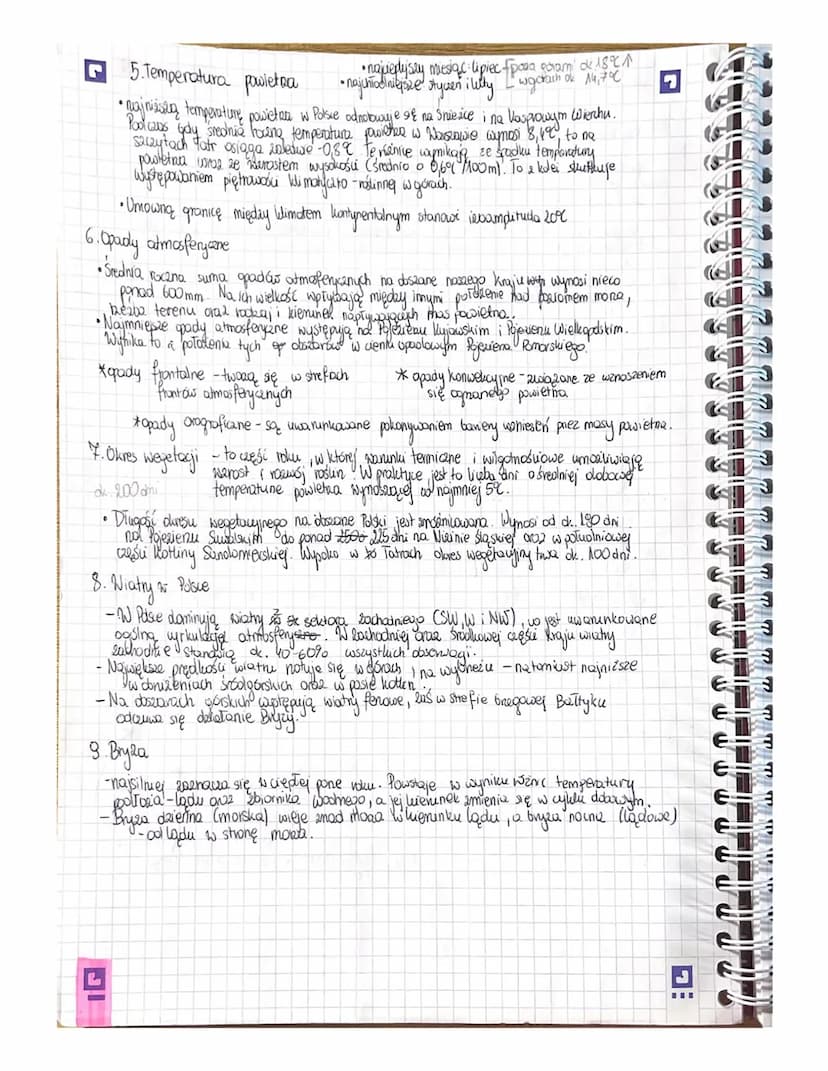 5. Temperatura powietrza
• najcieplejszy miesiąc: lipiec [poza górami ok 18°C ↑
• najchłodniejsze styczeń i luty [w górach ok 14,7°C
• najniższą temperaturę powietrza w Polsce odnotowuje się na Śnieżce i na Kasprowym Wierchu.
Podczas gdy średnia roczna temperatura powietrza w Warszawie wynosi 8,4°C to na
szczytach Tatr osiąga zaledwie -0,8°C Te różnice wynikają ze spadku temperatury
powietrza wraz ze wzrostem wysokości (średnio o 0,6°C/100m). To z kolei skutkuje
występowaniem piętrowości klimatyczno-roślinnej w górach.
• Umowną granicę między klimatem kontynentalnym stanowi izoamplituda 20°C
6. Opady atmosferyczne
• Średnia roczna suma opadów atmosferycznych na obszarze naszego kraju wynosi nieco
ponad 600mm. Na ich wielkość wpływają między innymi położenie nad poziomem morza,
rzeźba terenu oraz rodzaj i kierunek napływających mas powietrza.
• Najmniejsze opady atmosferyczne występują na Pojezierzu Kujawskim i Pojezierzu Wielkopolskim.
Wynika to z położenia tych obszarów w cieniu opadowym Pojezierza Pomorskiego.
* opady frontalne - tworzą się w strefach
frontów atmosferycznych
* opady konwekcyjne - związane ze wznoszeniem
się ogrzanego powietrza
* opady orograficzne - są uwarunkowane pokonywaniem bariery wzniesień przez masy powietrza.
7. Okres wegetacji - to część roku, w której warunki termiczne i wilgotnościowe umożliwiają
wzrost i rozwój roślin. W praktyce jest to liczba dni o średniej dobowej
ok. 200 dni
temperaturze powietrza wynoszącej co najmniej 5°C.
• Długość okresu wegetacyjnego na obszarze Polski jest zróżnicowana. Wynosi od ok. 190 dni
na Pojezierzu Suwalskim do ponad 225 dni na Nizinie Śląskiej oraz w południowej
części Kotliny Sandomierskiej. Wysoko w Tatrach okres wegetacyjny trwa ok. 100 dni.
8. Wiatry w Polsce
- W Polsce dominują wiatry z sektora zachodniego (SW, W i NW), co jest uwarunkowane
ogólną cyrkulacją atmosfery. W zachodniej oraz środkowej części kraju wiatry
zachodnie stanowią ok. 40-60% wszystkich obserwacji.
- Największe prędkości wiatru notuje się w górach i na wybrzeżu - natomiast najniższe
w obniżeniach śródgórskich oraz w pasie kotlin.
- Na obszarach górskich występują wiatry fenowe, zaś w strefie brzegowej Bałtyku
odczuwa się działanie Bryzy.
9. Bryza
- najsilniej zaznacza się w ciepłej porze roku. Powstaje w wyniku różnic temperatury
podłoża - lądu oraz zbiornika wodnego, a jej kierunek zmienia się w cyklu dobowym.
- Bryza dzienna (morska) wieje znad morza w kierunku lądu, a bryza nocna (lądowa)
- od lądu w stronę morza.